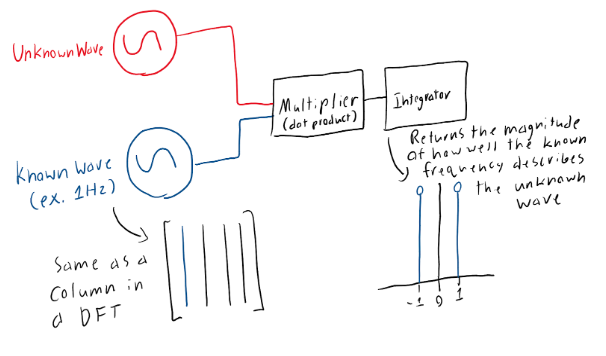 Unknown Wave
Multiplier
(dot product)
Integrator
Known Wave
(ex. 1Hz)
Returns the magnitude
of how well the known
frequency describes
the unknown
wave
Same as a
column in
a DFT
-1 0 1